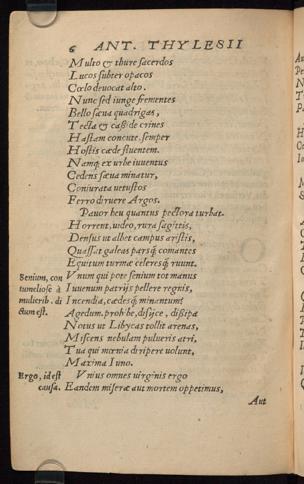 6 ANT. THYLESII
Multo & thure sacerdos
Lucos subter opacos
Cœlo deuocat alto.
Nunc sed iunge frementes
Bello sæua quadrigas,
Tecta & casside crines
Hastam concute semper
Hostis cæde fluentem.
Namq; ex urbe iuuentus
Cedens sæua minatur,
Coniurata uetustos
Ferro diruere Argos.
Pauor heu quantus pectora turbat.
Horrent, uideo, rura sagittis,
Densus ut albet campus aristis,
Quassat galeas pars q; comantes
Equitum turmæ celeresq; ruunt.
Senium, con
Vnum qui pote senium tot manus
tumeliose à
Iuuenum patrijs pellere regnis,
mulierib. di
Incendia, cædesq; minantum?
ctum est.
Agedum. prohibe, disijce, dissipa
Notus ut Libycas tollit arenas,
Miscens nebulam pulueris atri,
Tua qui mœnia diripere uolunt,
Maxima Iuno.
Ergo, id est
Vnius omnes uirginis ergo
causa.
Eandem miseræ aut mortem oppetimus,
Aut